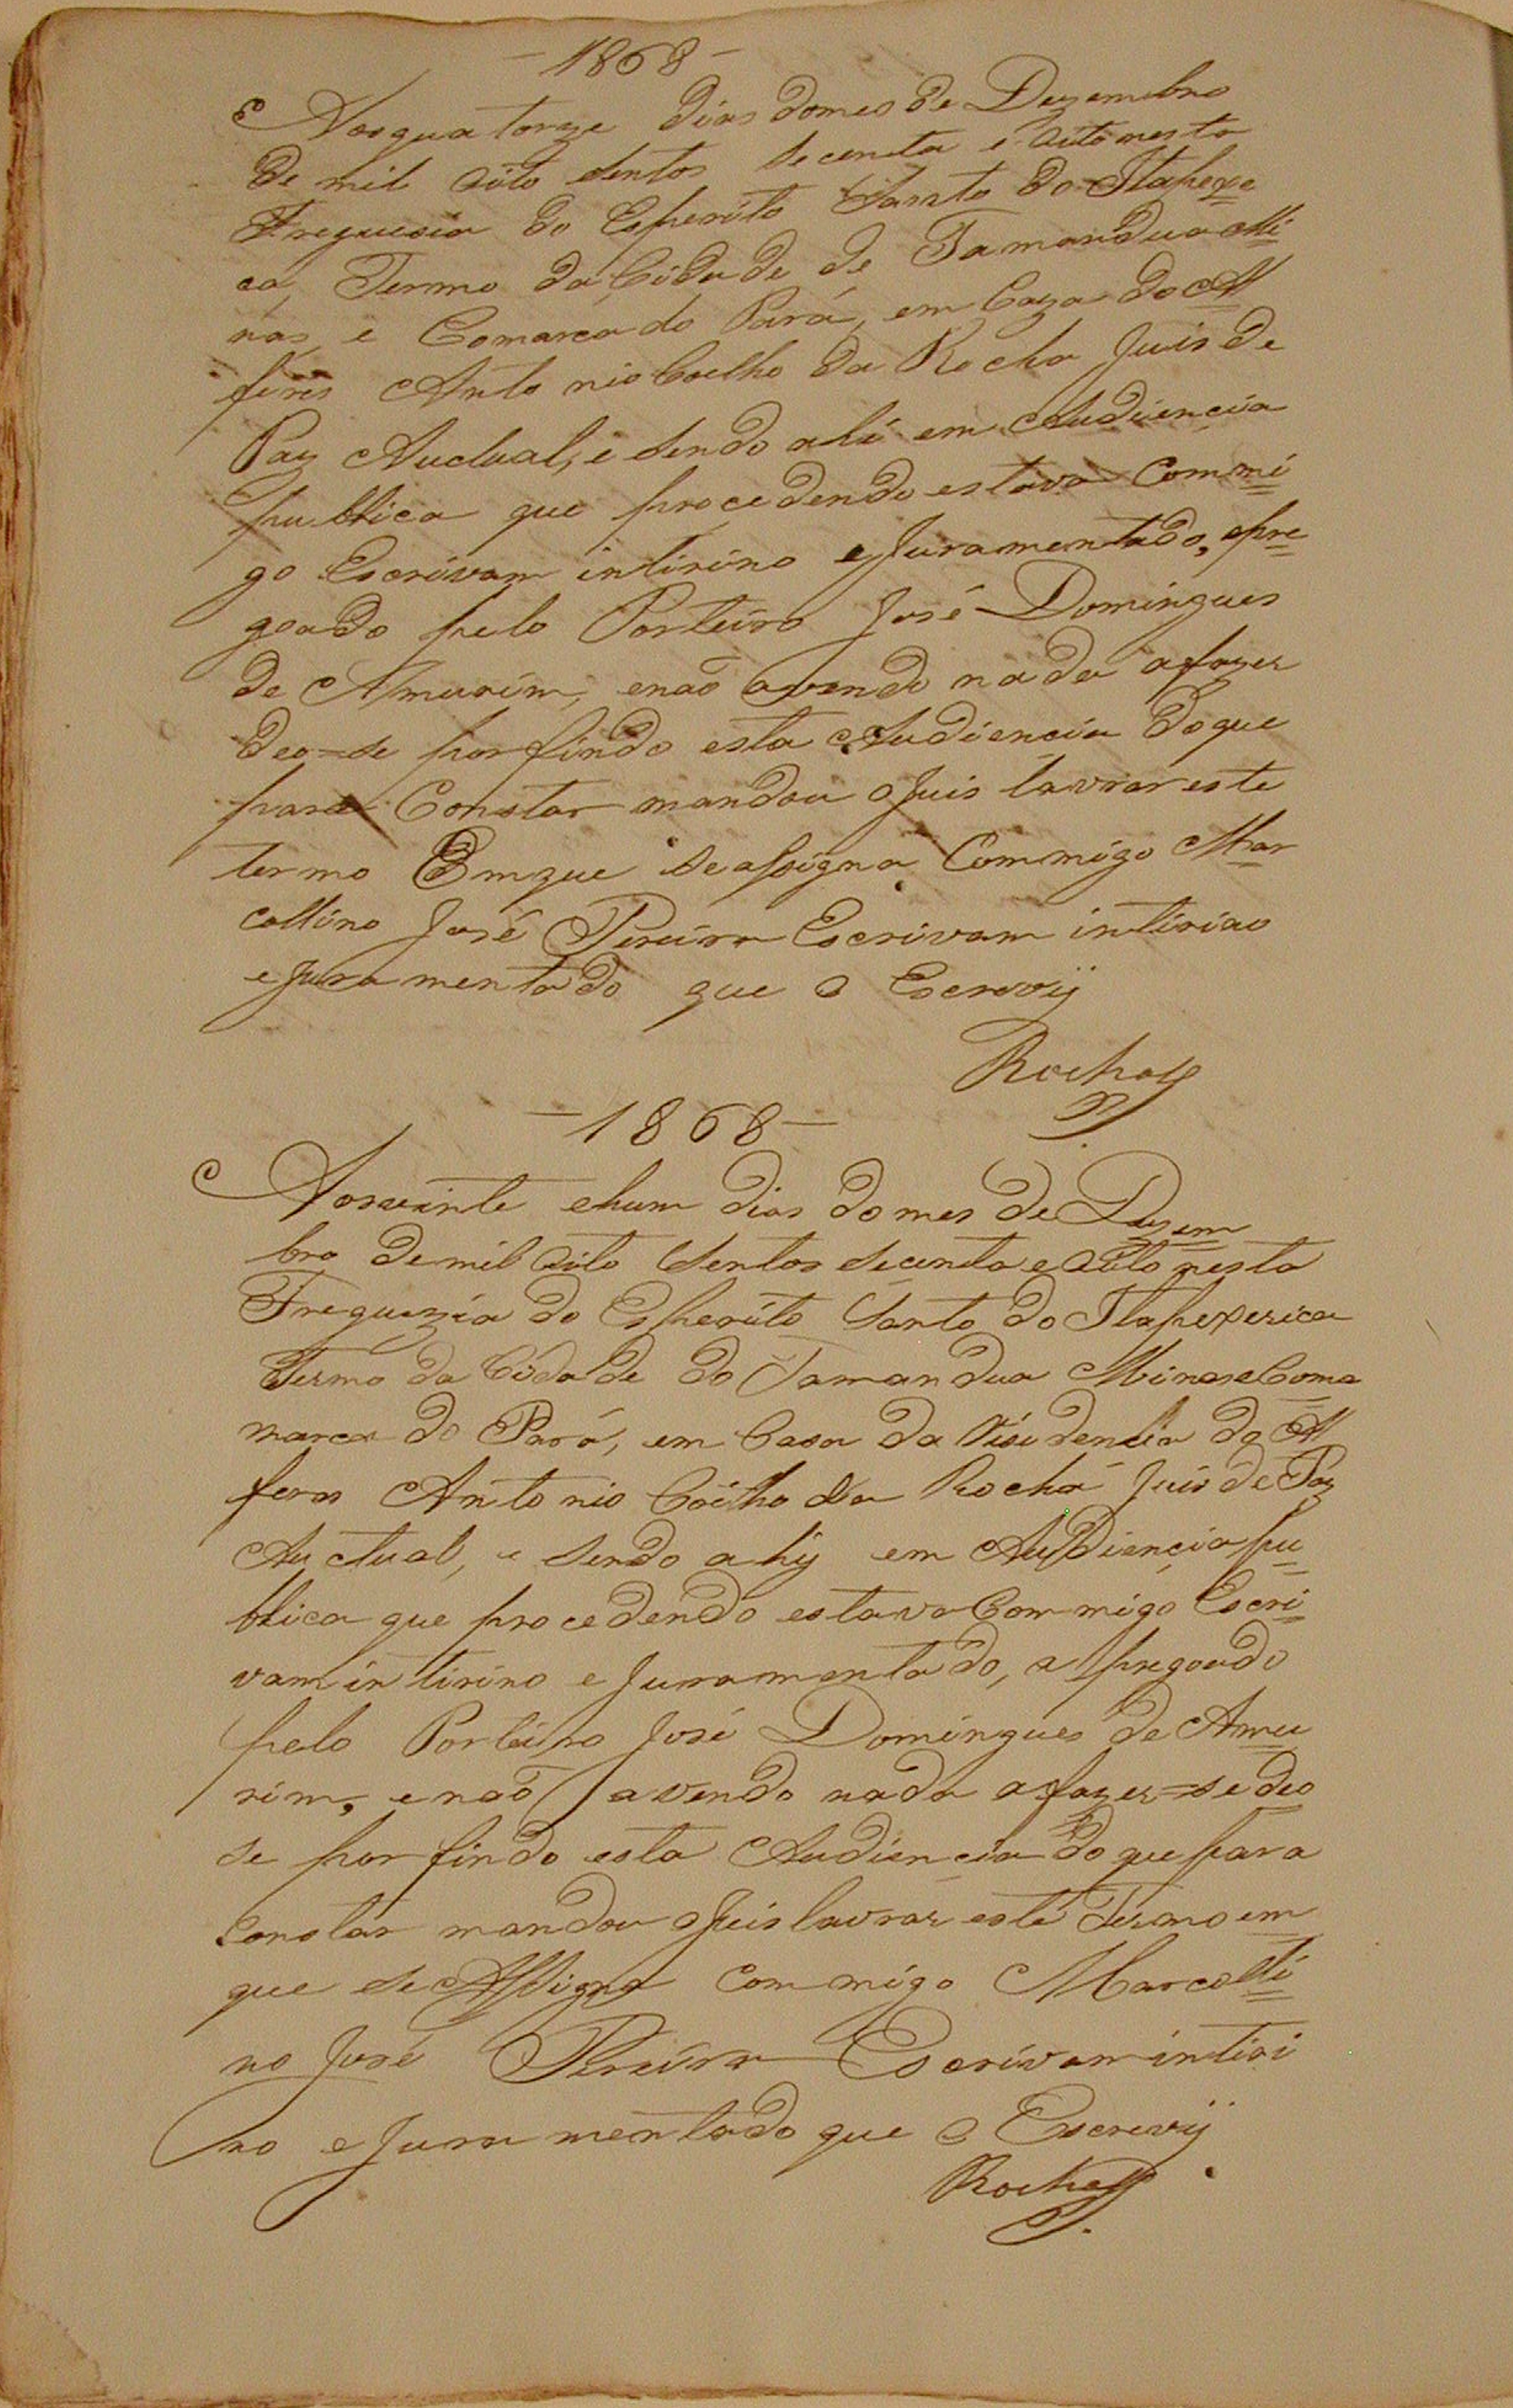 -1868-
Aos quatorze dias do mes de Dezembro
de mil oito sentos secenta e oito nesta
Freguesia do Esperito Santo do Itapexe
ca, Termo da Cidade de Tamandua Mi
nas, e Comarca do Pará, em Caza do Al
feres Antonio Coelho da Rocha Juis de
Paz Auctual, e sendo ahi em Audiencia
publica que procedendo estava Commi
go Escrivam intirino e Juramentado, apre
goado pelo Porteiro José Domingues
de Amurim, e naõ avendo nada a fazer
deo=se por findo esta Audiencia do que
para Constar mandou o Juis lavrar este
termo Em que se assigna Commigo Mar
collino José Pereira Escrivam intirino
e Juramentado que o Escrevij
Rocha
-1868-
Aos vinte e hum dias do mes de Dezem
bro de mil oito sentos secenta e oito nesta
Freguezia do Esperito Santo do Itapexerica
Termo da Cidade do Tamandua Minas e Coma
marca do Pará, em Casa da Risidencia do Al
feres Antonio Coelho da Rocha Juis de Paz
Auctual, e sendo ahy em Audiencia pu
blica que procedendo estava Commigo Escri
vam intirino e Juramentado, a pregoado
pelo Porteiro José Domingues de Amu
rim, e naõ avendo nada a fazer=se deo
se por findo esta Audiencia do que para
Constar mandou o Juis lavrar este Termo em
que se Assigna Commigo Marcolli
no José Pereira Escrivam intiri
no e Juramentado que o Escrevij
Rocha